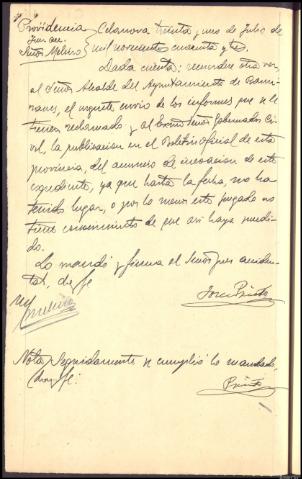 Providencia
Juez acc.
Señor Meleiro
Celanova treinta y uno de Julio de
mil novecientos cuarenta y
Dada cuenta; recuérdese otra vez
al Señor Alcalde del Ayuntamiento de
el urgente envío de los informes que se le
tienen reclamado y al Excmo Señor Gobernador Ci-
vil, la publicación en el Boletín Oficial de esta
provincia, del anuncio de incoación de este
expediente, ya que hasta la fecha, no ha
tenido lugar, o por lo menos este juzgado no
tiene conocimiento de que así haya sucedi-
do.
Lo mandó y firma el Señor Juez acciden-
tal, doy fe
Meleiro
Nota: Seguidamente se cumplió lo mandado,
doy fé: